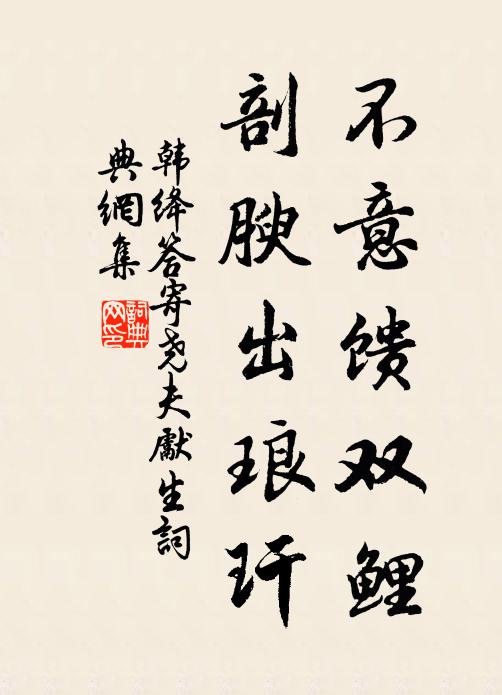 不意馈双鲤
剖腴出琅玕
韩绛答寄尧夫獻生詞
典網集
詞典网印